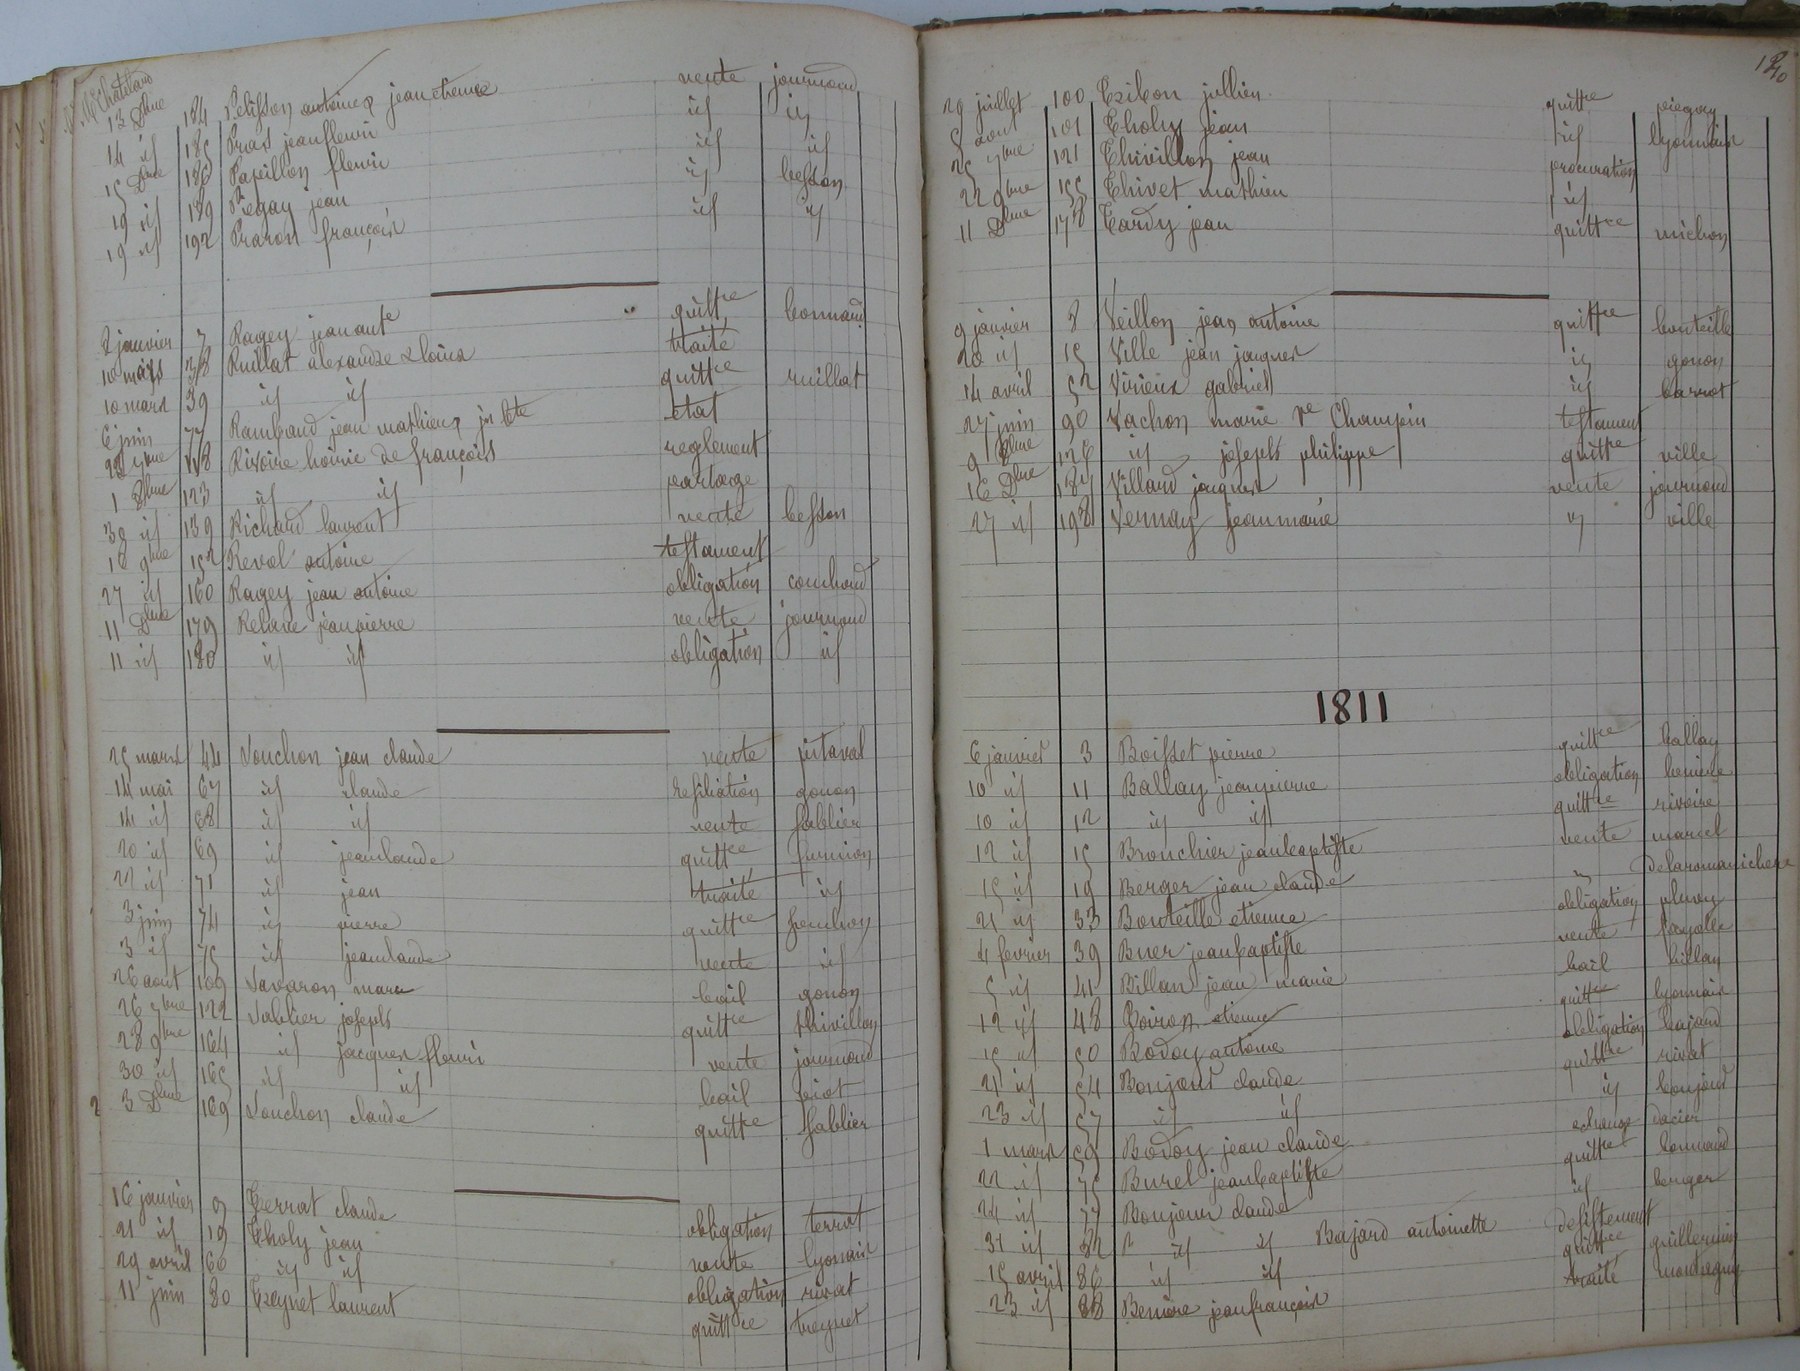 13 Dbre 184 Pelisson antoine & jean etienne vente journoud
14 id 185 Pras jean fleuri id id
15 Dbre 186 Papillon fleuri id id
19 id 189 Pegay jean id besson
19 id 192 Praron françois id id
2 janvier 7 Ragey jean ante quittce bonnand
10 mars 38 Ruillat alexandre & louise traité
10 mars 39 id id quittce ruillat
6 juin 77 Rambaud jean mathieu & jn bte etat
22 7bre 118 Rivoire hoirie de françois reglement
1 8bre 123 id id partage
30 id 139 Richard laurent vente besson
18 9bre 152 Reval antoine testament
27 id 160 Ragey jean antoine obligation couchoud
11 Dbre 179 Relave jean pierre vente journoud
11 id 180 id id obligation id
25 mars 44 Souchon jean claude vente pitaval
14 mai 67 id claude resiliation gonon
14 id 68 id id vente sablier
20 id 69 id jean claude quittce furnion
22 id 71 id jean traité id
3 juin 74 id pierre quittce souchon
3 id 75 id jean claude vente id
26 aout 109 Savaron marc bail gonon
26 7bre 122 Sablier joseph quittce thivillon
28 9bre 164 id jacques fleuri vente journoud
30 id 165 id id bail piot
3 Dbre 169 Souchon claude quittce sablier
16 janvier 9 Terrat claude obligation terrat
21 id 19 Tholy jean vente lyonnais
29 avril 60 id id obligation rivat
11 juin 80 Treynet laurent quittce treynet
120
29 juillet 100 Tribon jullien quittce piegay
8 aout 101 Tholy jean id lyonnais
25 7bre 121 Thivillon jean procuration
22 9bre 155 Thivet mathieu id
11 Dbre 178 Tardy jean quittce michon
9 janvier 2 Veillon jean antoine quittce bouteille
20 id 15 Ville jean jacques id gonon
14 avril 52 Virieux gabriel id barrot
27 juin 90 Vachon marie Ve Champin testament
9 8bre 126 id joseph philippe quittce ville
16 Dbre 187 Villard jacques vente journoud
27 id 198 Vernay jean marie id ville
1811
6 janvier 3 Boisset pierre quittce ballay
10 id 11 Ballay jean pierre obligation beniere
10 id 12 id id quittce rivoire
12 id 15 Brouchier jean baptiste vente marcel
15 id 19 Berger jean claude id delaromanichere
21 id 33 Bouteille etienne obligation pluvy
4 fevrier 39 Buer jean baptiste vente fayolle
5 id 41 Billan jean marie bail billan
12 id 48 Boiron etienne quittce lyonnais
15 id 50 Bodoy antoine obligation bajard
21 id 54 Bonjour claude quittce rivat
23 id 57 id id id bonjour
1 mars 59 Bodoy jean claude echange dacier
22 id 75 Burel jean baptiste quittce bonnand
24 id 77 Bonjour claude id berger
31 id 82 id id Bajard antoinette desistement
15 avril 86 id id quittce guillermin
23 id 88 Beniere jean françois traité montagny